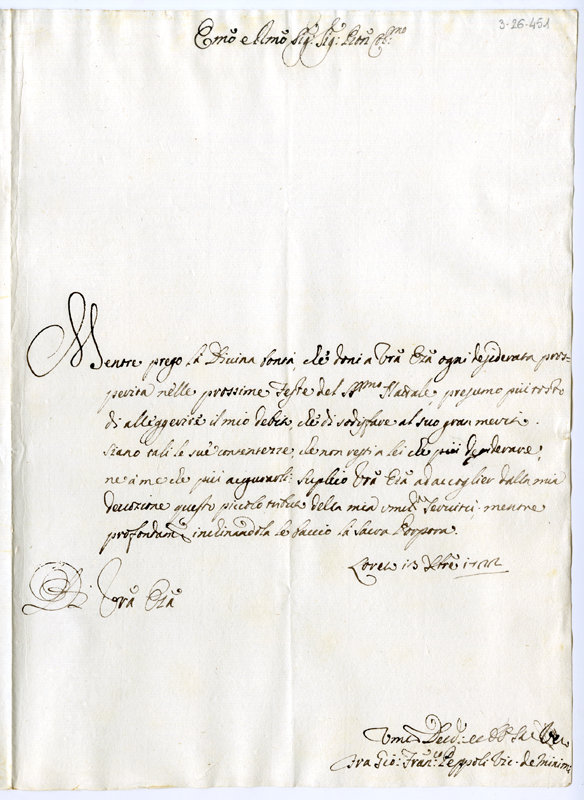 3-26-451
Emo e Rmo Sig: Sig: Prōn Col:mo
Mentre prego la Divina bontà, che doni a Vrā Emā ogni desiderata pros-
perità nelle prossime Feste del SSmo Natale, presumo più tosto
di alleggerire il mio debito, che di sodisfare al suo gran merito.
Siano tali le sue contentezze, che non resti a lei che più desiderare,
ne a me che più augurarli: Suplico Vrā Emā ad accoglier dalla mia
devozione questo piccolo tributo della mia umil Servitù; mentre
profondamte inclinandola le baccio la Sacra Porpora.
Loreto 13 Xbre
Di Vrā Emā
Umo Devo: et
Fra Gio: Franco Peppoli Vic. de Minimi